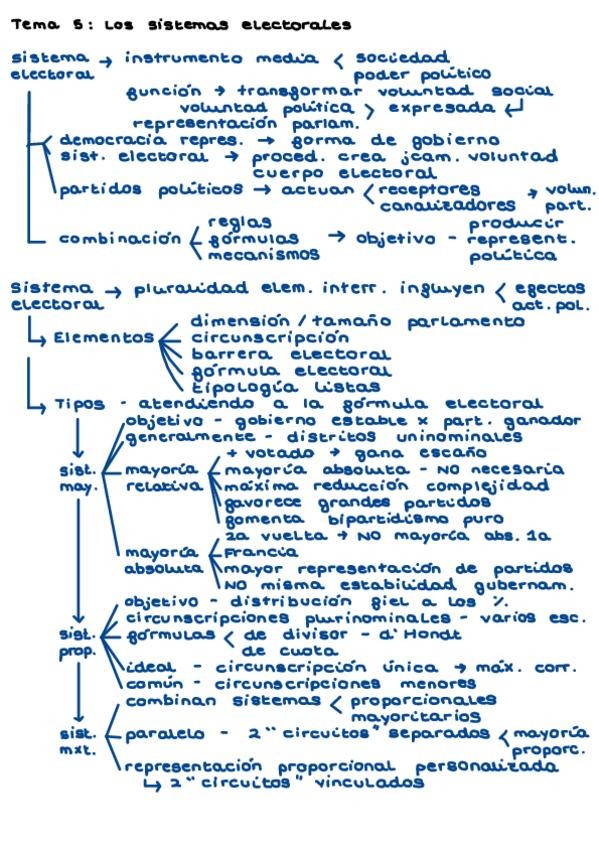 Tema 5: Los sistemas electorales
sistema → instrumento media < sociedad
electoral poder político
función → transformar voluntad social
voluntad política > expresada ↵
representación parlam.
democracia repres. → forma de gobierno
sist. electoral → proced. crea jcam. voluntad
cuerpo electoral
partidos políticos → actúan < receptores → volun.
canalizadores part.
reglas producir
combinación < fórmulas → objetivo - represent.
mecanismos política
Sistema → pluralidad elem. interr. influyen < efectos
electoral act. pol.
dimensión / tamaño parlamento
↳ Elementos < circunscripción
barrera electoral
fórmula electoral
tipología listas
↳ Tipos - atendiendo a la fórmula electoral
objetivo - gobierno estable x part. ganador
generalmente - distritos uninominales
+ votado → gana escaño
sist. mayoría mayoría absoluta - NO necesaria
may. relativa máxima reducción complejidad
favorece grandes partidos
fomenta bipartidismo puro
2a vuelta → NO mayoría abs. 1a
mayoría Francia
absoluta mayor representación de partidos
NO misma estabilidad gubernam.
objetivo - distribución fiel a los %.
circunscripciones plurinominales - varios esc.
sist. fórmulas < de divisor - d'Hondt
prop. de cuota
ideal - circunscripción única → máx. corr.
común - circunscripciones menores
combinan sistemas < proporcionales
mayoritarios
sist. paralelo - 2 "circuitos" separados < mayoría
mxt. proporc.
representación proporcional personalizada
↳ 2 "circuitos" vinculados